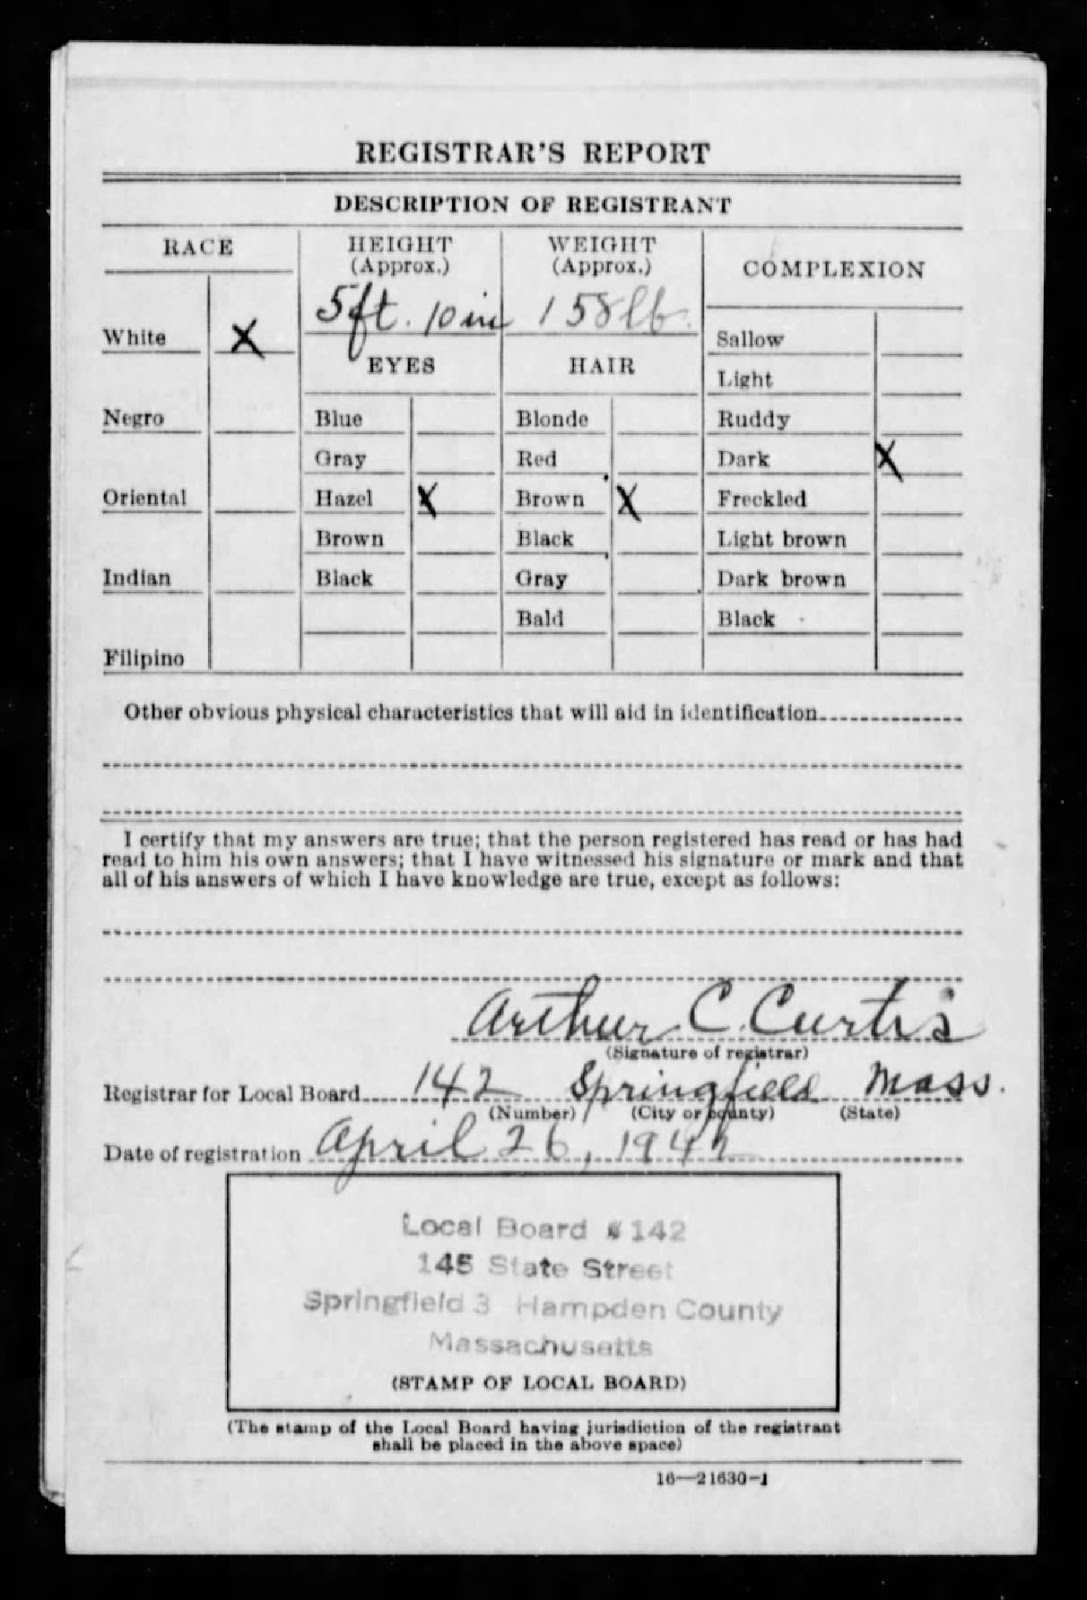 REGISTRAR'S REPORT
DESCRIPTION OF REGISTRANT
RACE
HEIGHT
(Approx.)
WEIGHT
(Approx.)
COMPLEXION
5 ft. 10 in
158 lb.
White X
EYES
HAIR
Sallow
Light
Negro
Blue
Blonde
Ruddy
Gray
Red
Dark X
Oriental
Hazel X
Brown X
Freckled
Brown
Black
Light brown
Indian
Black
Gray
Dark brown
Bald
Black
Filipino
Other obvious physical characteristics that will aid in identification
I certify that my answers are true; that the person registered has read or has had
read to him his own answers; that I have witnessed his signature or mark and that
all of his answers of which I have knowledge are true, except as follows:
Arthur C. Curtis
(Signature of registrar)
Registrar for Local Board 142 Springfield Mass.
(Number) (City or county) (State)
Date of registration April 26, 1942
Local Board # 142
145 State Street
Springfield 3 Hampden County
Massachusetts
(STAMP OF LOCAL BOARD)
(The stamp of the Local Board having jurisdiction of the registrant
shall be placed in the above space)
16—21630-1